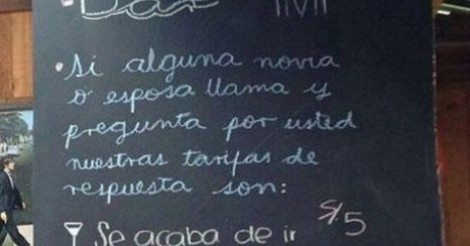 Bar
• Si alguna novia
o esposa llama y
pregunta por usted
nuestras tarifas de
respuesta son:
Se acaba de ir S/5